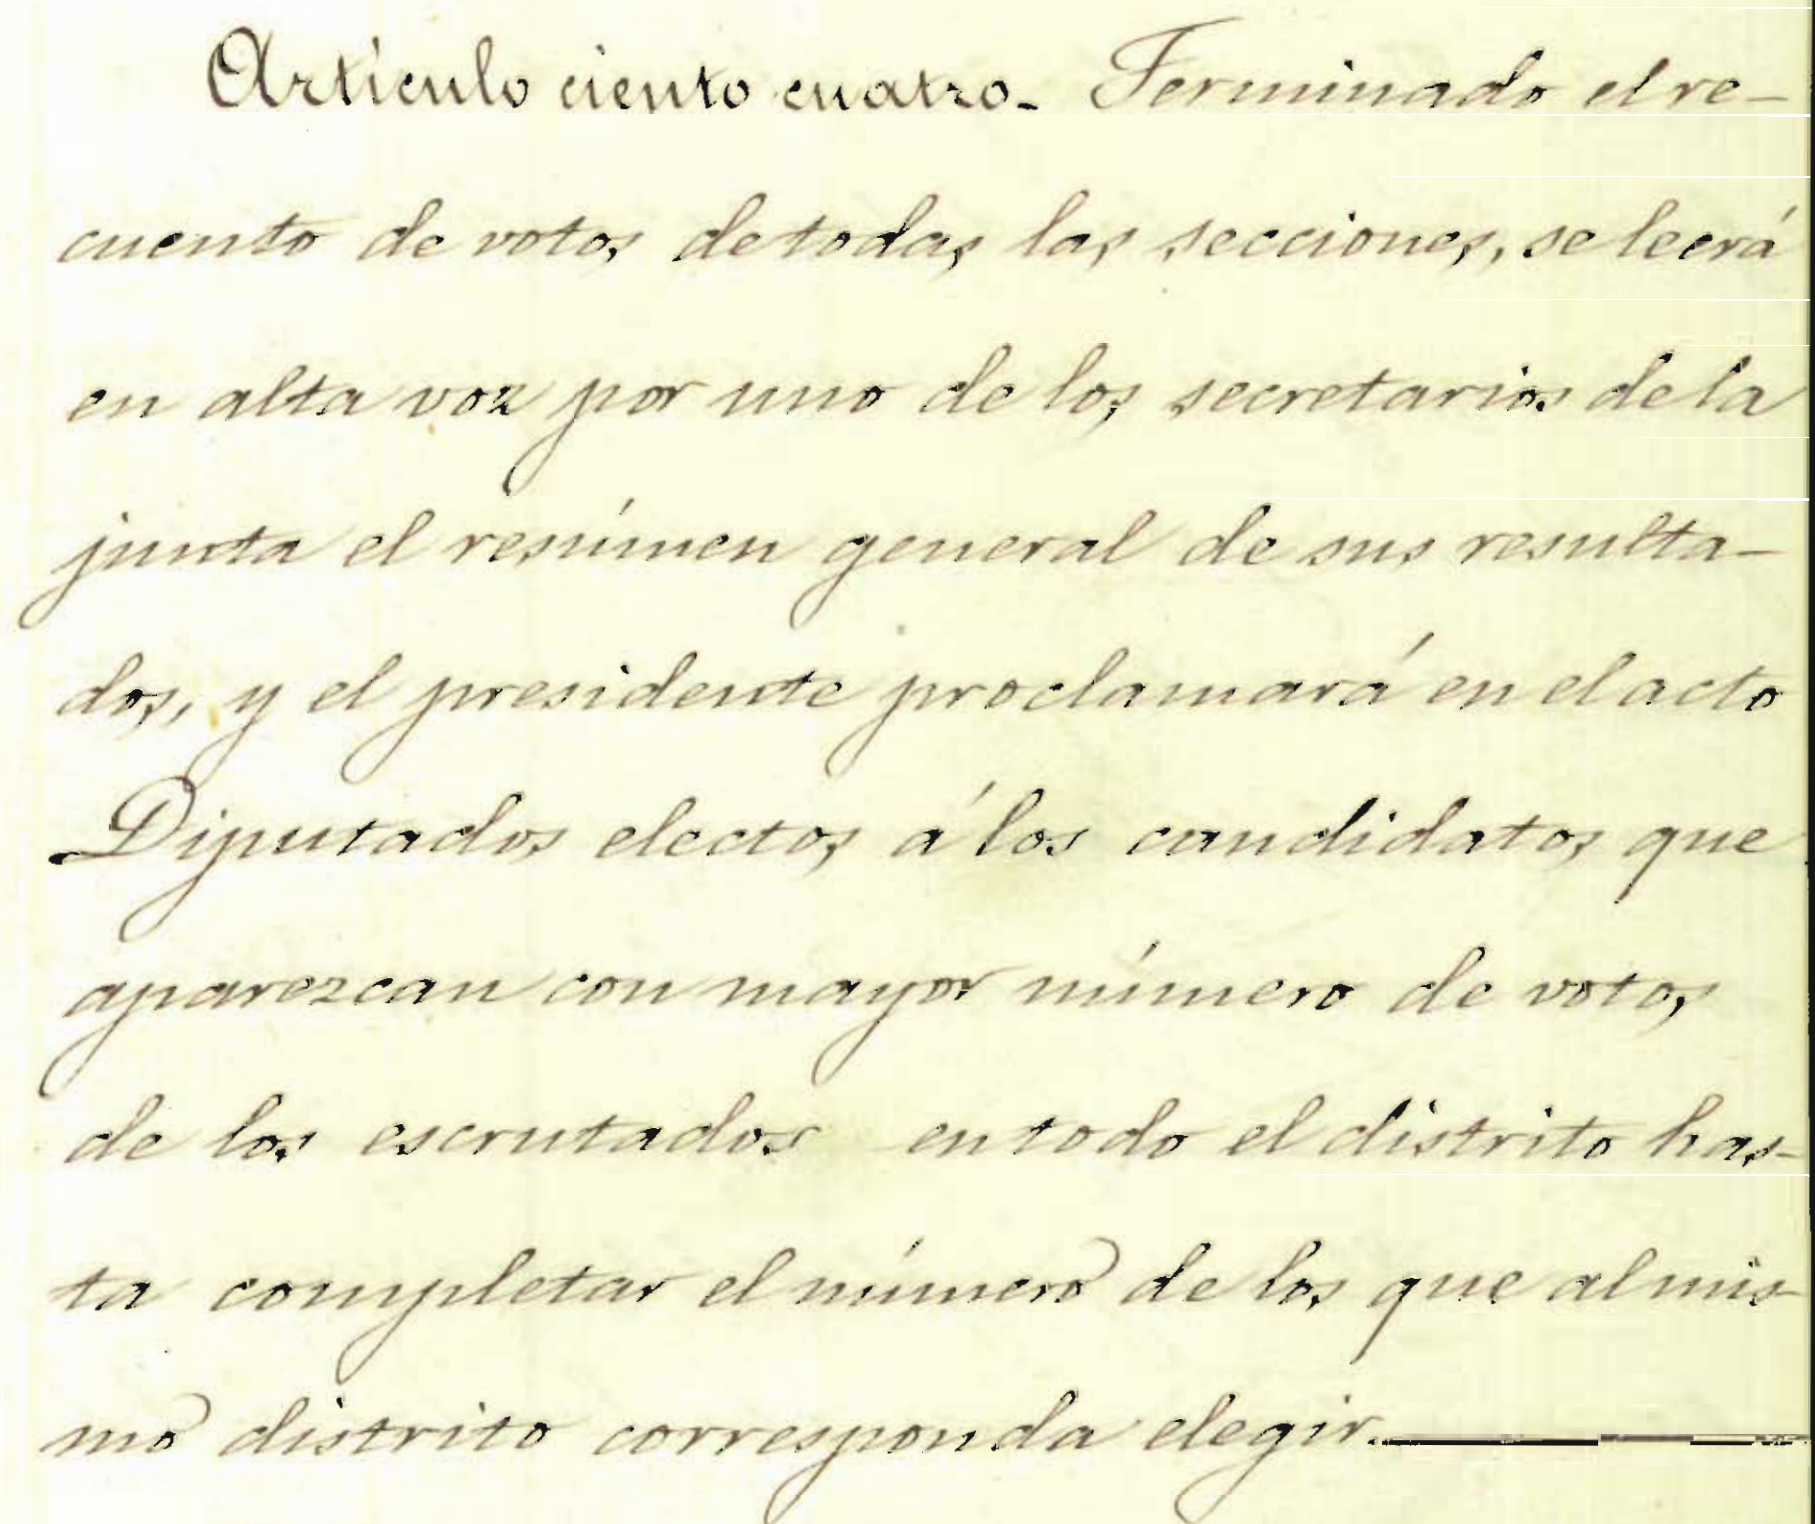 Artículo ciento cuatro. Terminado el re-
cuento de votos de todas las secciones, se leerá
en alta voz por uno de los secretarios de la
junta el resúmen general de sus resulta-
dos, y el presidente proclamará en el acto
Diputados electos á los candidatos que
aparezcan con mayor número de votos
de los escrutados en todo el distrito has-
ta completar el número de los que al mis-
mo distrito corresponda elegir.